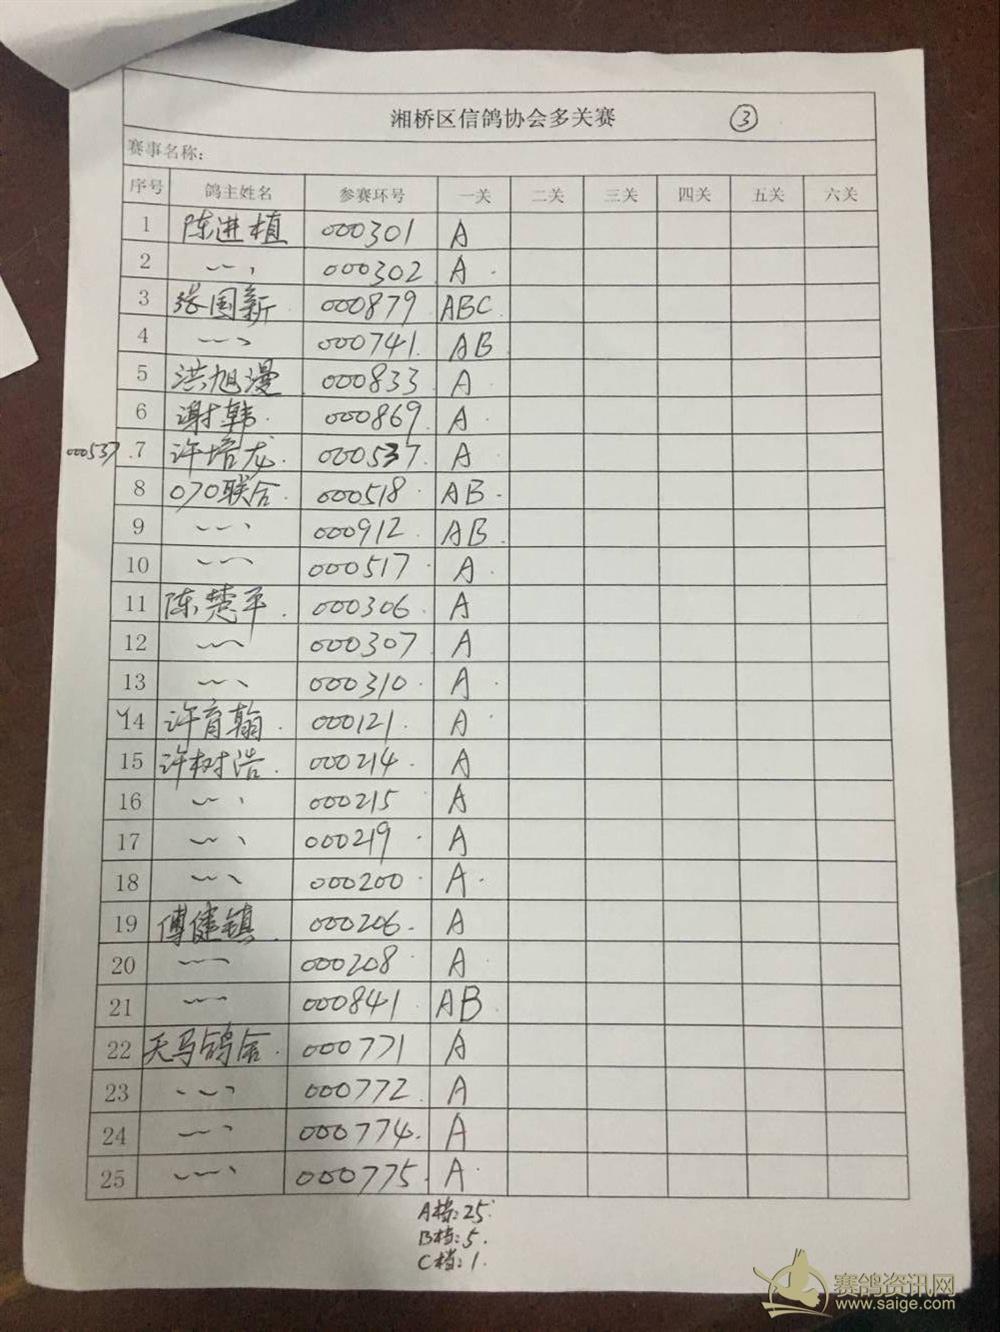 湘桥区信鸽协会多关赛 ③
赛事名称:
序号 鸽主姓名 参赛环号 一关 二关 三关 四关 五关 六关
1 陈进植 000301 A
2 000302 A
3 张国新 000879 ABC
4 000741 AB
5 洪旭漫 000833 A
6 谢韩 000869 A
000537 7 许培龙 000537 A
8 070联合 000518 AB
9 000912 AB
10 000517 A
11 陈楚平 000306 A
12 000307 A
13 000310 A
14 许育翰 000121 A
15 许树浩 000214 A
16 000215 A
17 000219 A
18 000200 A
19 傅健镇 000206 A
20 000208 A
21 000841 AB
22 天马鸽舍 000771 A
23 000772 A
24 000774 A
25 000775 A
A档:25
B档:5
C档:1
赛鸽资讯网
www.saige.com